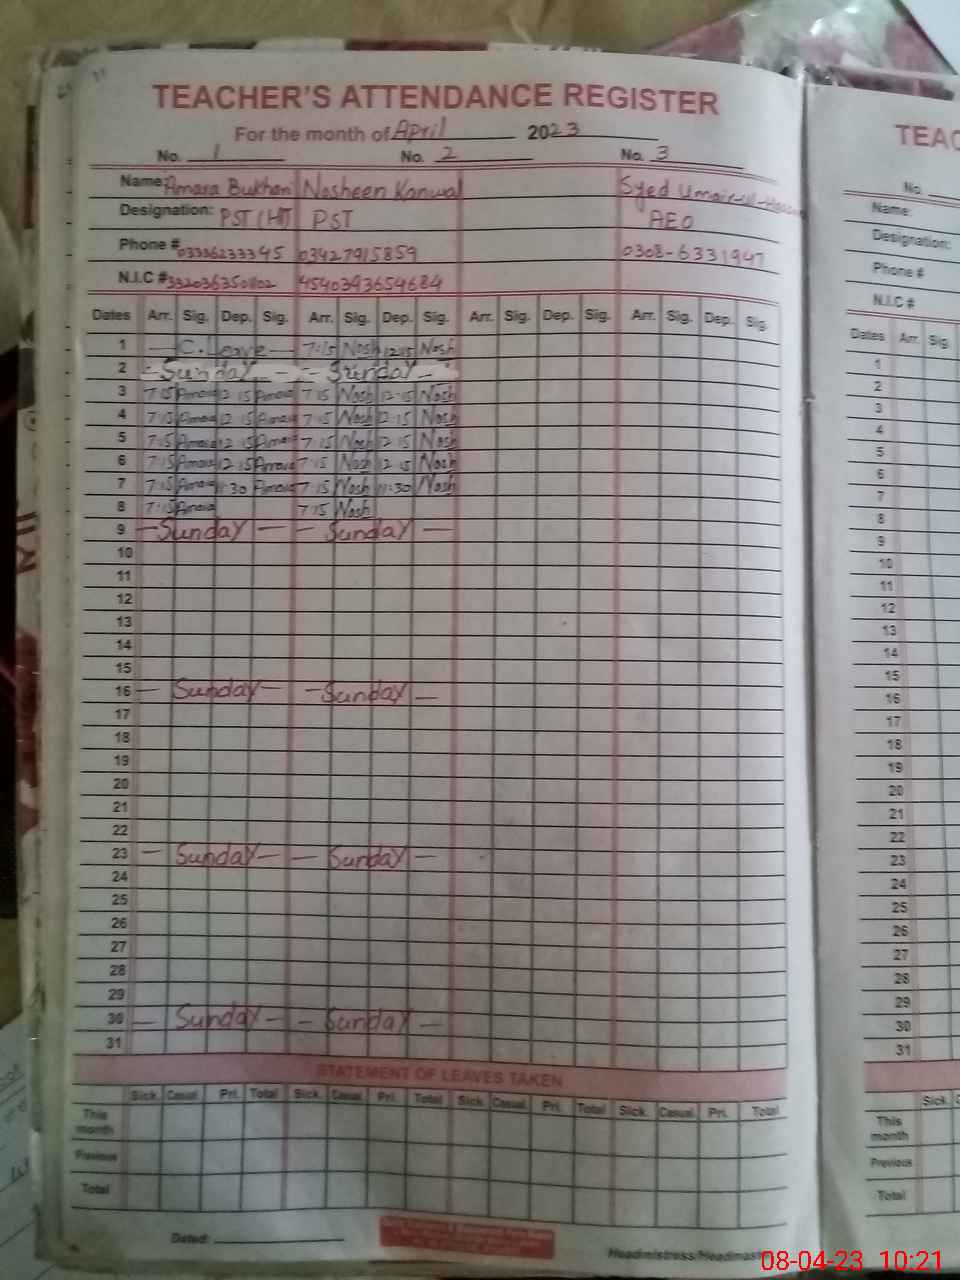 TEACHER'S ATTENDANCE REGISTER
For the month of April 2023
No. 1 No. 2 No. 3
Name: Amara Bukhari Nosheen Kanwal Syed Umair-ul-Hassan
Designation: PST (HT) PST AEO
Phone # 03336233345 03427915859 0308-6331947
N.I.C # 4540393654684
Dates Arr. Sig. Dep. Sig. Arr. Sig. Dep. Sig. Arr. Sig. Dep. Sig. Arr. Sig. Dep. Sig.
1 — C. Leave — 7:15 Nosh 12:15 Nosh
2 - Sunday - - Sunday -
3 7:15 Amara 12:15 Amara 7:15 Nosh 12:15 Nosh
4 7:15 Amara 12:15 Amara 7:15 Nosh 12:15 Nosh
5 7:15 Amara 12:15 Amara 7:15 Nosh 12:15 Nosh
6 7:15 Amara 12:15 Amara 7:15 Nosh 12:15 Nosh
7 7:15 Amara 11:30 Amara 7:15 Nosh 11:30 Nosh
8 7:15 Amara 7:15 Nosh
9 — Sunday — — Sunday —
10
11
12
13
14
15
16 — Sunday — — Sunday —
17
18
19
20
21
22
23 — Sunday — — Sunday —
24
25
26
27
28
29
30 — Sunday — — Sunday —
31
STATEMENT OF LEAVES TAKEN
Sick. Casual. Pri. Total Sick. Casual. Pri. Total Sick. Casual. Pri. Total Sick. Casual. Pri. Total
This month
Previous
Total
Dated:
Headmistress/Headmas
TEAC
No.
Name:
Designation:
Phone #
N.I.C #
Dates Arr. Sig.
1
2
3
4
5
6
7
8
9
10
11
12
13
14
15
16
17
18
19
20
21
22
23
24
25
26
27
28
29
30
31
Sick. C
This month
Previous
Total
08-04-23 10:21